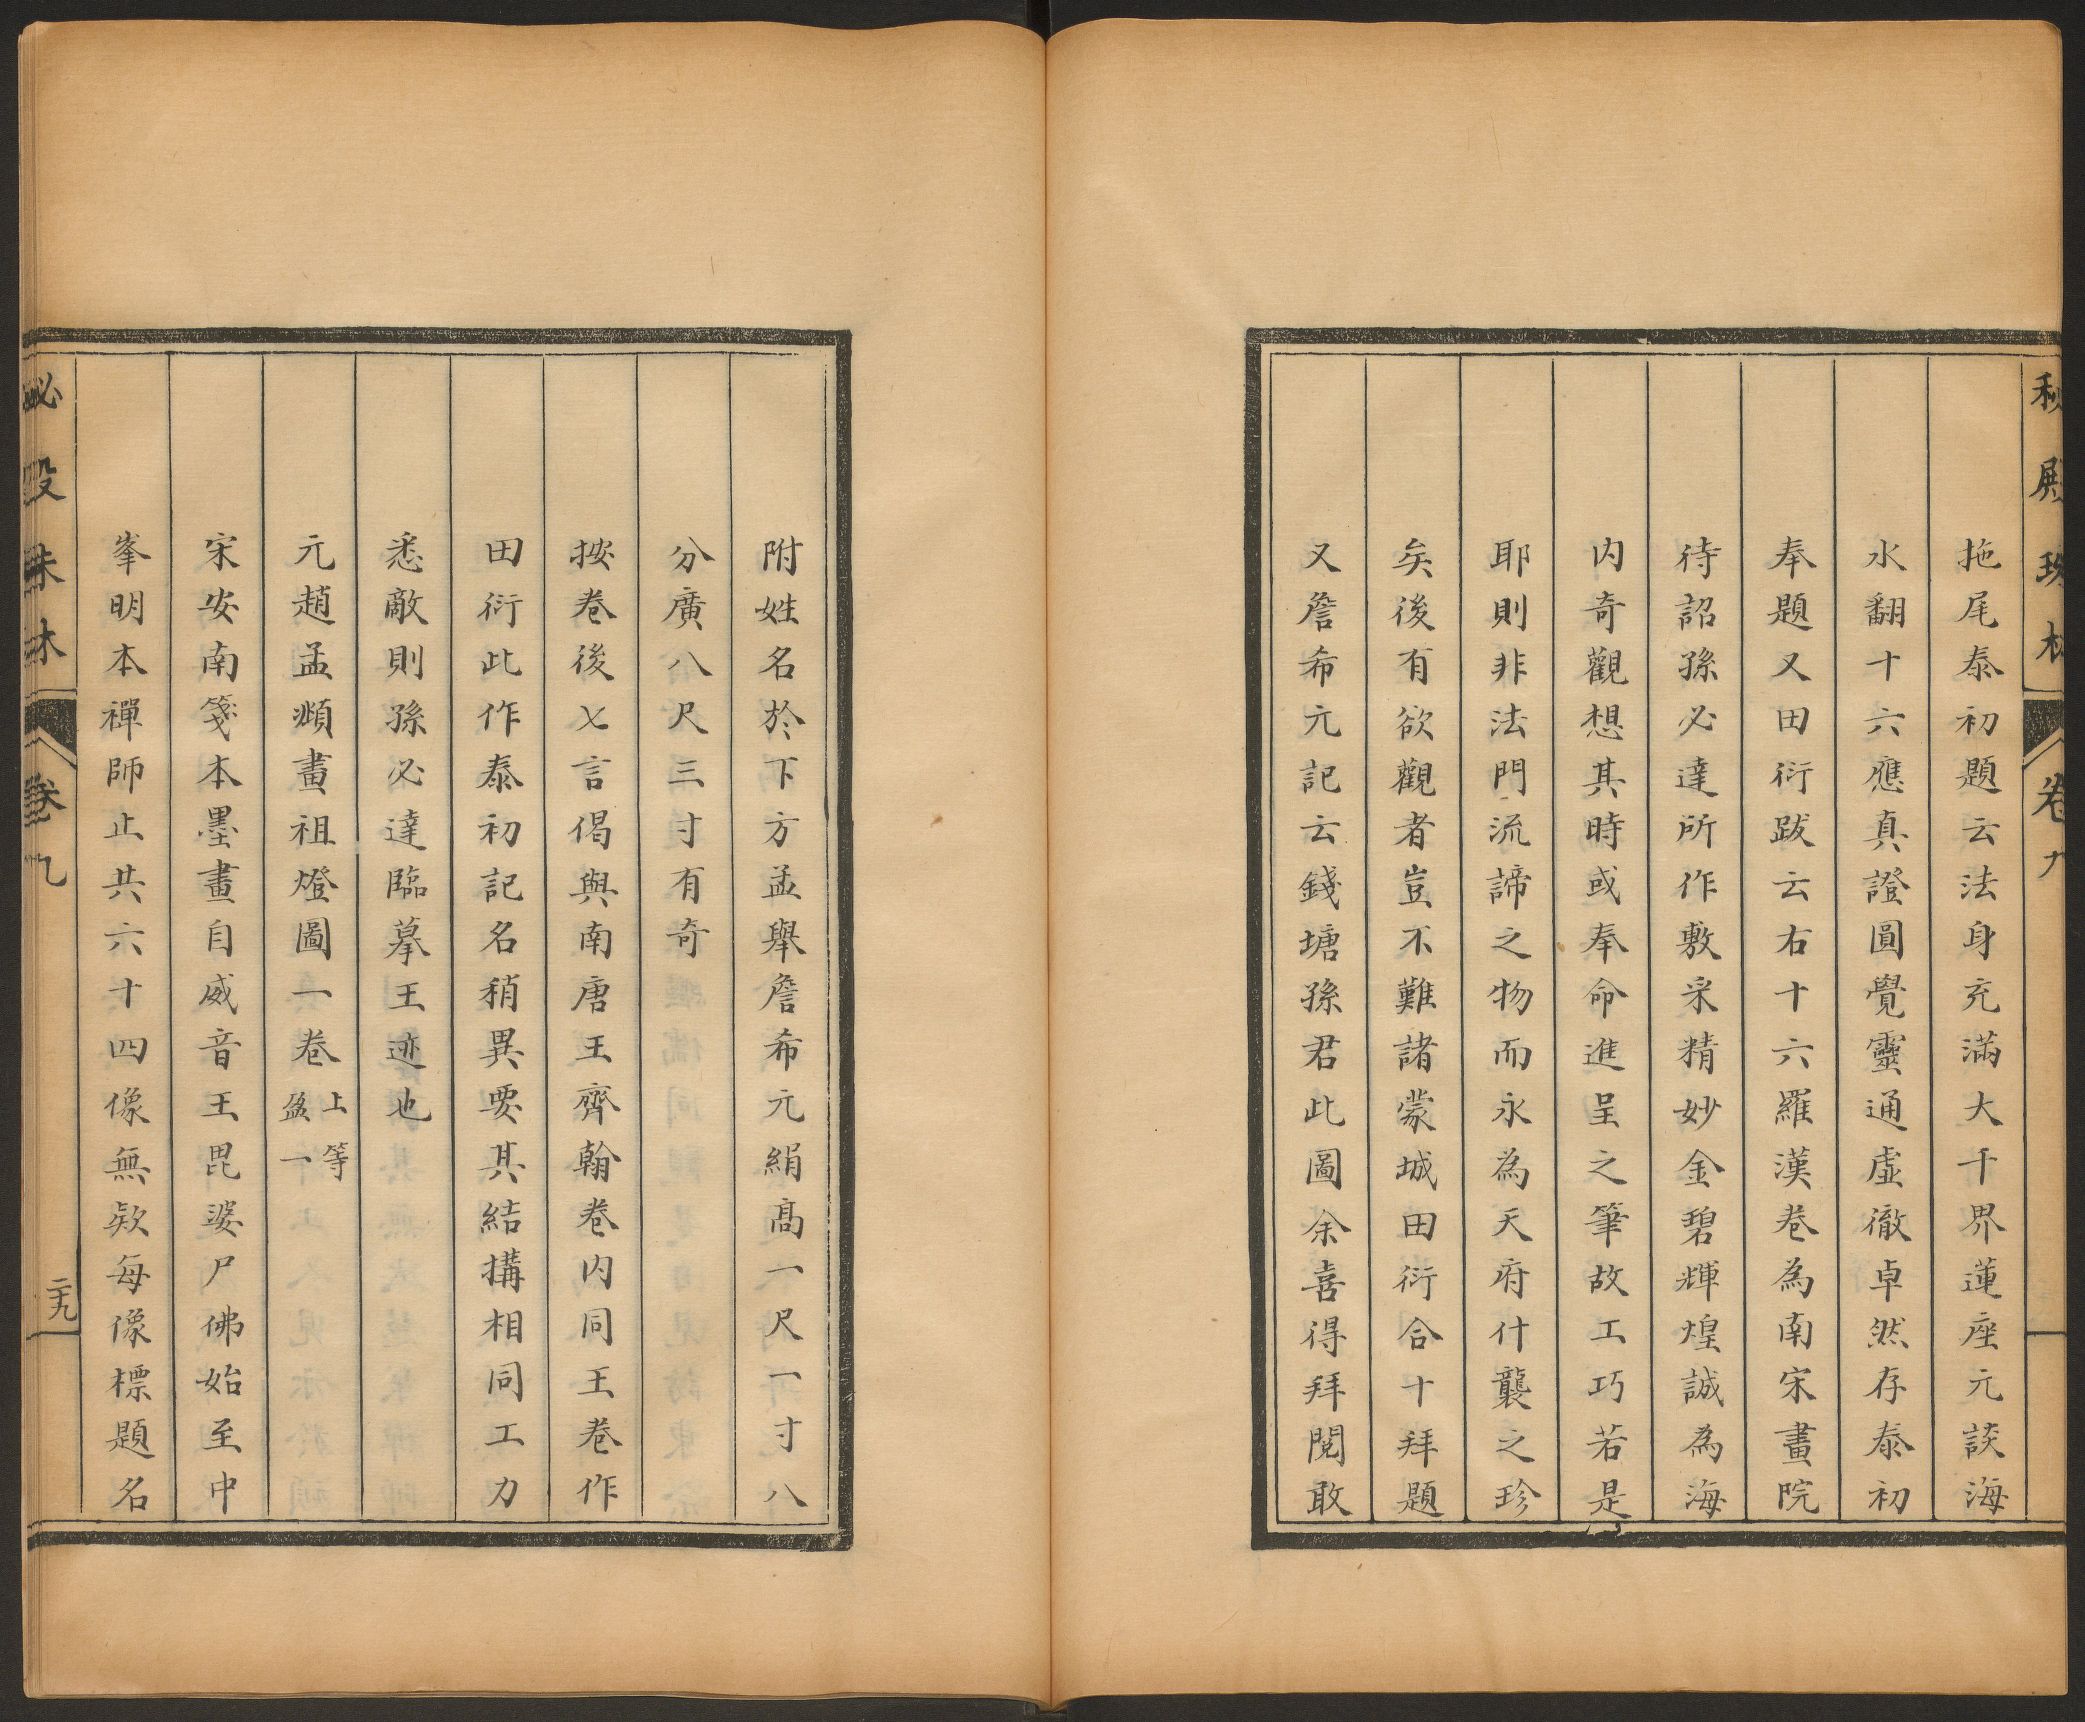 秘殿珠林
卷九
拖尾泰初題云法身充滿大千界蓮座元談海
水翻十六應真證圓覺靈通虛徹卓然存泰初
奉題又田衍跋云右十六羅漢卷為南宋畫院
待詔孫必達所作敷采精妙金碧輝煌誠為海
内奇觀想其時或奉命進呈之筆故工巧若是
耶則非法門流諦之物而永為天府什襲之珍
矣後有欲觀者豈不難諸蒙城田衍合十拜題
又詹希元記云錢塘孫君此圖余喜得拜閱敢
附姓名於下方孟舉詹希元絹高一尺一寸八
分廣八尺三寸有奇
按卷後七言偈與南唐王齊翰卷内同王卷作
田衍此作泰初記名稍異要其結搆相同工力
悉敵則孫必達臨摹王迹也
元趙孟頫畫祖燈圖一卷上等盈一
宋安南箋本墨畫自威音王毘婆尸佛始至中
峯明本禪師止共六十四像無欵每像標題名
秘殿珠林
卷九
二十九